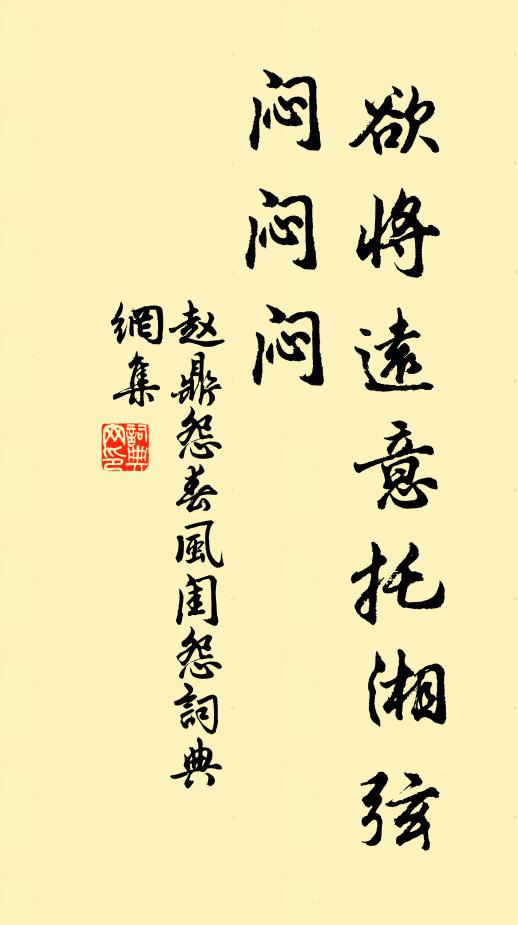 欲将遠意托湘弦
闷闷闷
赵鼎怨春風闺怨詞典
網集
詞典
网印